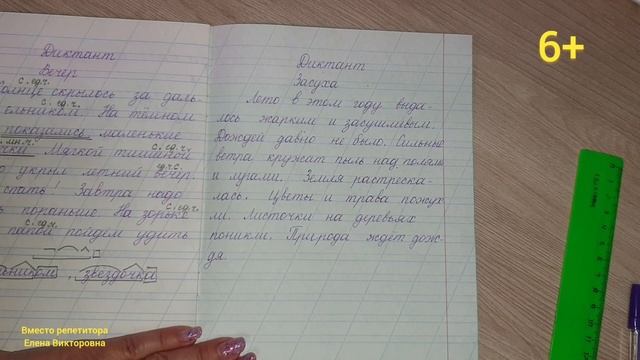 Диктант
Вечер
с. ед.ч.
скрылось за даль-
с. ед.ч.
ельником. На тёмном
показались маленькие
мн.ч. с. ед.ч.
Мягкой тишиной
ед.ч.
укрыл летний вечер
спать! Завтра надо
пораньше. На зорьке
с. ед.ч.
папой пойдём удить
звездочка
Диктант
Засуха
Лето в этом году выда-
лось жарким и засушливым.
Дождей давно не было. Сильные
ветра кружат пыль над полями
и лугами. Земля растреска-
лась. Цветы и трава пожух-
ли. Листочки на деревьях
поникли. Природа ждёт дож-
дя.
6+
Вместо репетитора
Елена Викторовна